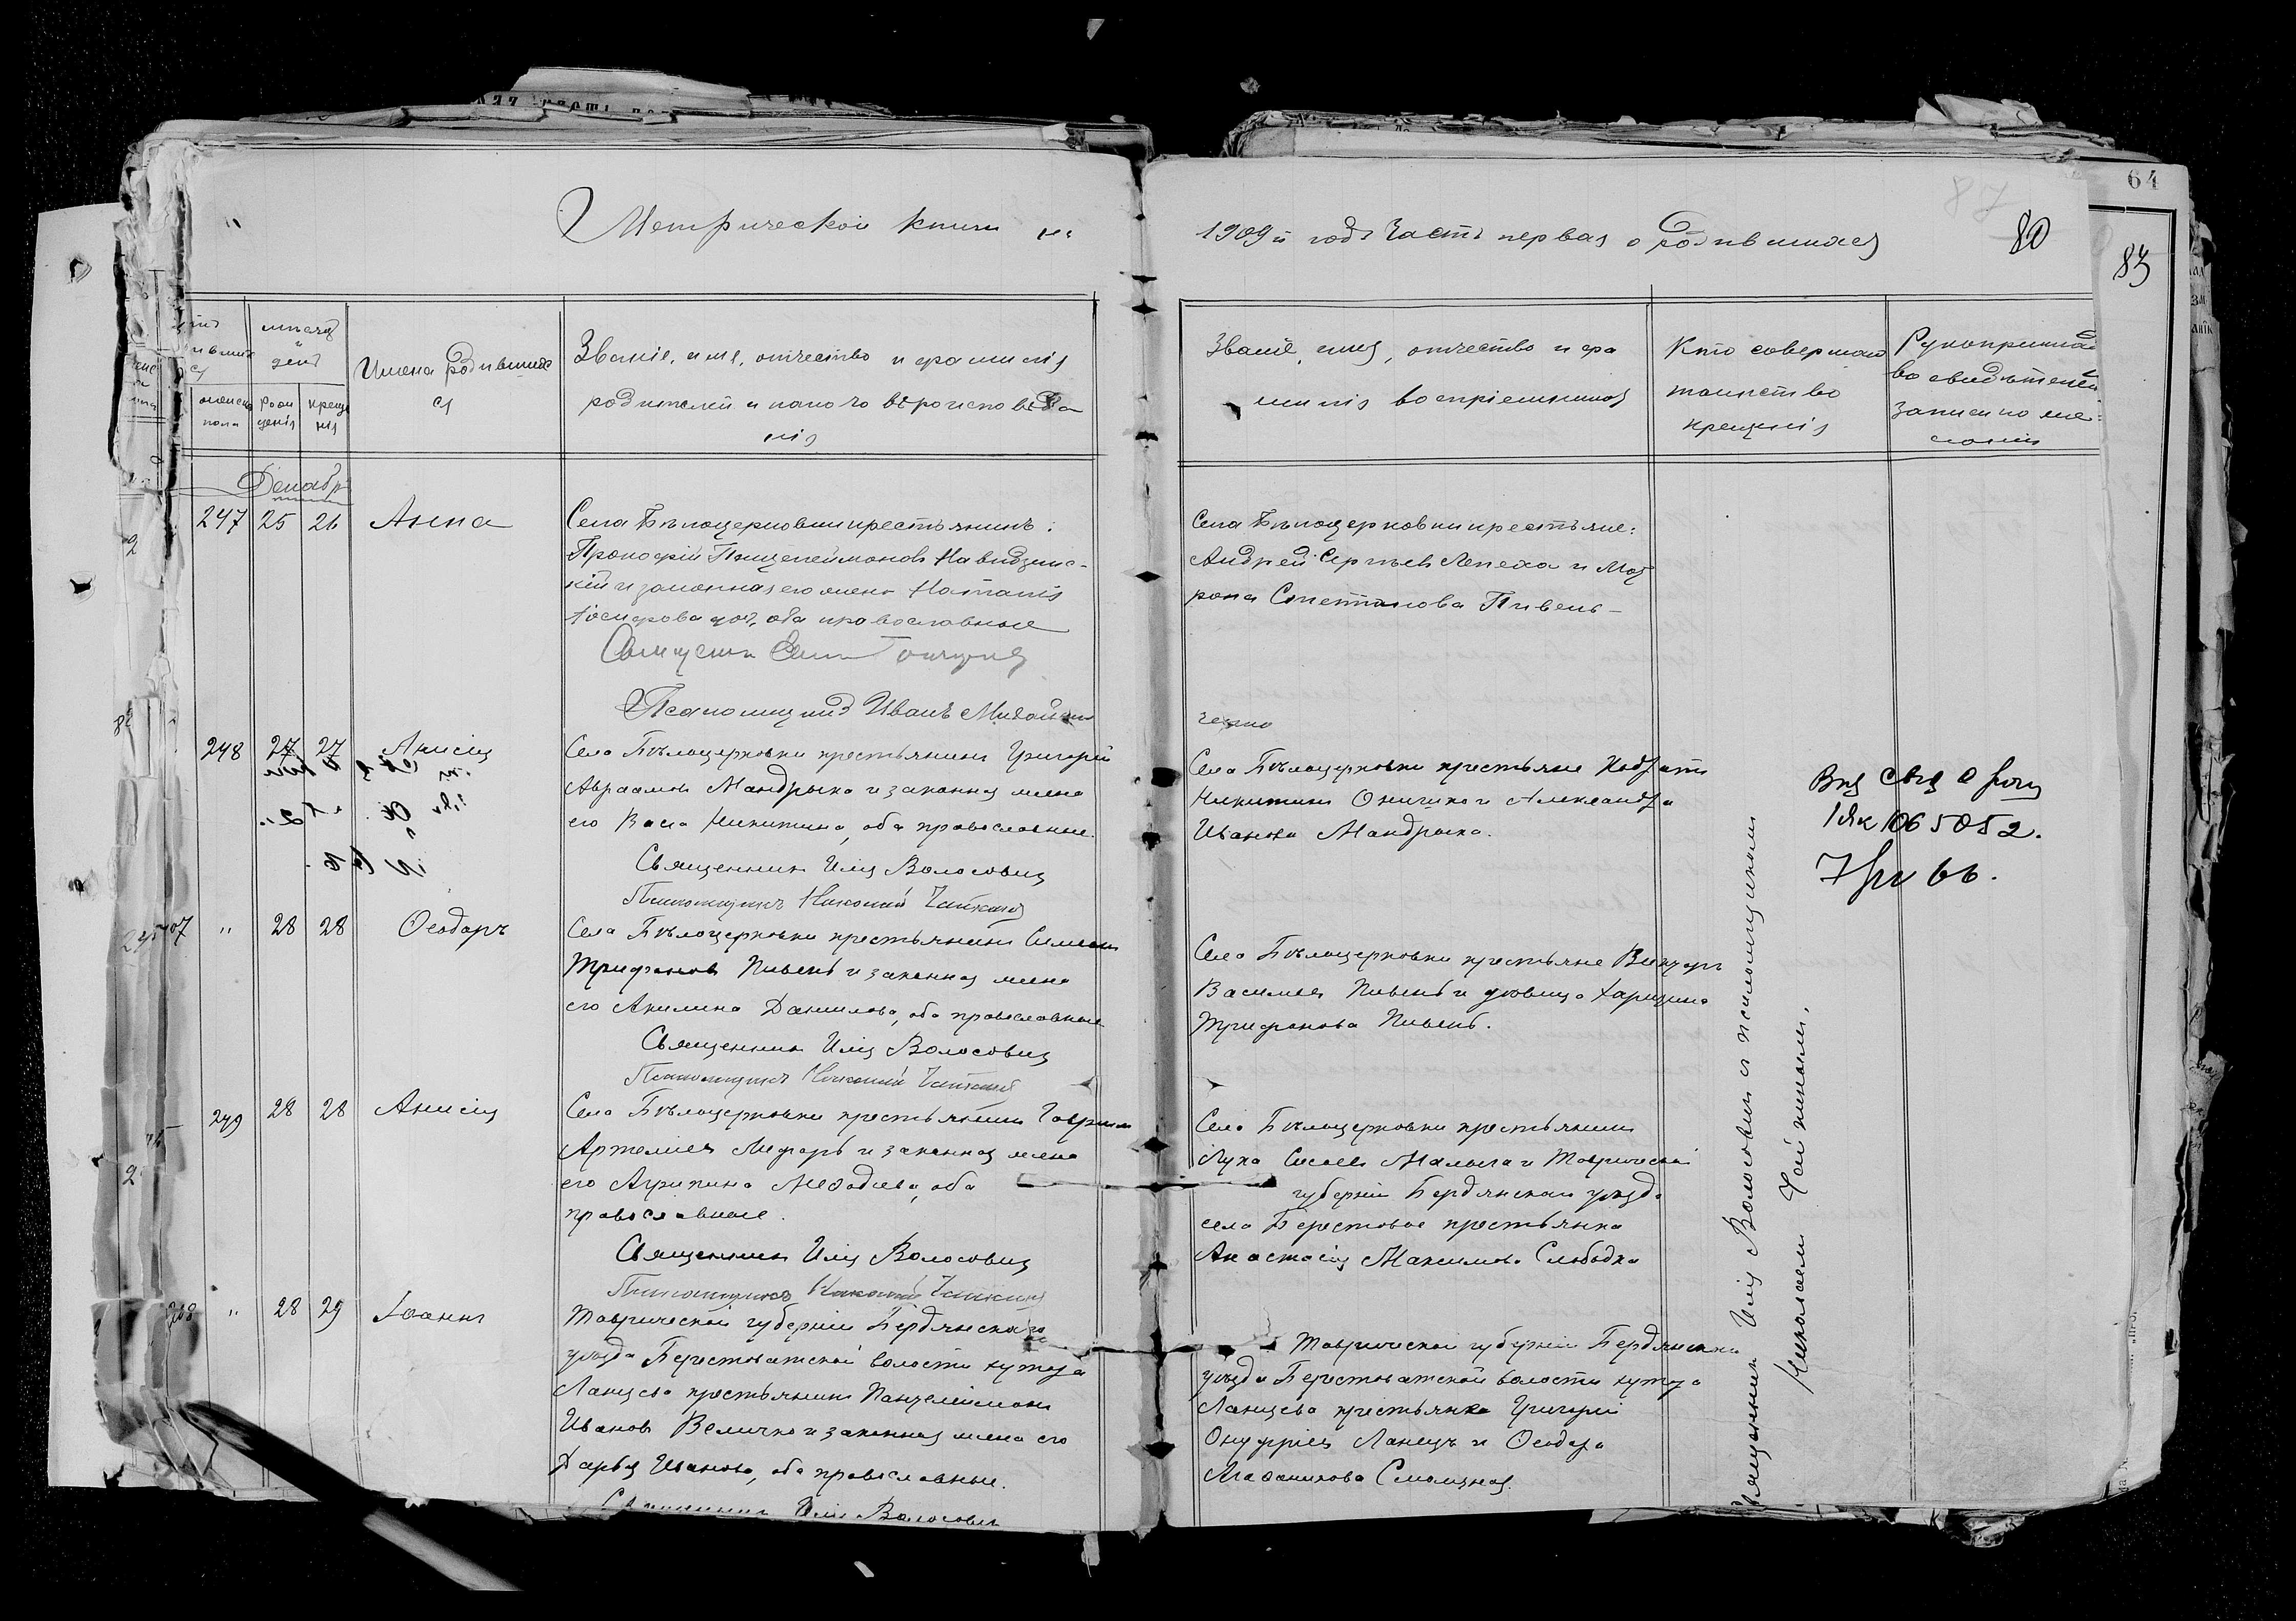 Метрической книги на
1909й годъ Часть первая о родившихся
80
83
64
87
мѣсяцъ
и
день
женска
пола
рож
денія
креще
нія
Имена родивших
ся
Званіе, имя, отчество и фамилія
родителей и какого вѣроисповѣда
нія
Званіе, имя, отчество и фа
милія воспріемниковъ
Кто совершал
таинство
крещенія
Рукоприкла
во свидѣтелей
записи по же
ланію
Декабрь
247 25 26 Анна
Села Бѣлоцерковки крестьянинъ:
Прокофій Панцелеймоновъ Навидзинс-
кій и законная его жена Наталія
Іосифова доч, оба православные
Псаломщикъ Иванъ Михайли
ченко
Села Бѣлоцерковки крестьяне:
Андрей Сергѣевъ Лепеха и Мат
рона Пивень
248 27 27 Анисія
Села Бѣлоцерковки крестьянинъ Григорій
Авраамовъ Мандрыка и законная жена
его Васса Никитина, оба православные.
Священникъ Илія Волосович
Псаломщикъ Николай Чайкинъ
Села Бѣлоцерковки крестьяне Кодратъ
Никитинъ Онишко и Александра
Иванова Мандрыка.
Выд свид о рожд
1ЯК 1065052.
66.
207 " 28 28 Ѳеодоръ
Села Бѣлоцерковки крестьянинъ Симеонъ
Трифоновъ Пивень и законная жена
его Акилина Данилова, оба православные
Священникъ Илія Волосович
Псаломщикъ Николай Чайкинъ
Села Бѣлоцерковки крестьяне Викторъ
Васильевъ Пивень и дѣвица Харитина
Трифонова Пивень.
249 28 28 Анисія
Села Бѣлоцерковки крестьянинъ Гавріилъ
Артеміевъ Лифарь и законная жена
его Агрипина Меѳодіева, оба
православные.
Священникъ Илія Волосович
Псаломщикъ Николай Чайкинъ
Села Бѣлоцерковки крестьянинъ
Лука Сисоевъ Малыга и Таврической
губерніи Бердянскаго уѣзда
села Берестовое крестьянка
Анастасія Максимова Слободка
208 " 28 29 Іоаннъ
Таврической губерніи Бердянскаго
уѣзда Берестоватской волости хутора
Ланцева крестьянинъ Панцелеймонъ
Ивановъ Величко и законная жена его
Дарья Иванова, оба православные.
Священникъ Илія Волосович
Таврической губерніи Бердянскаго
уѣзда Берестоватской волости хутора
Ланцева крестьянка Григорій
Онуфріевъ Ланецъ и Ѳеодора
Агаѳоникова Смолицкая.
Священникъ Илія Волосовичъ и псаломщикомъ
Николаемъ Чайкинымъ.